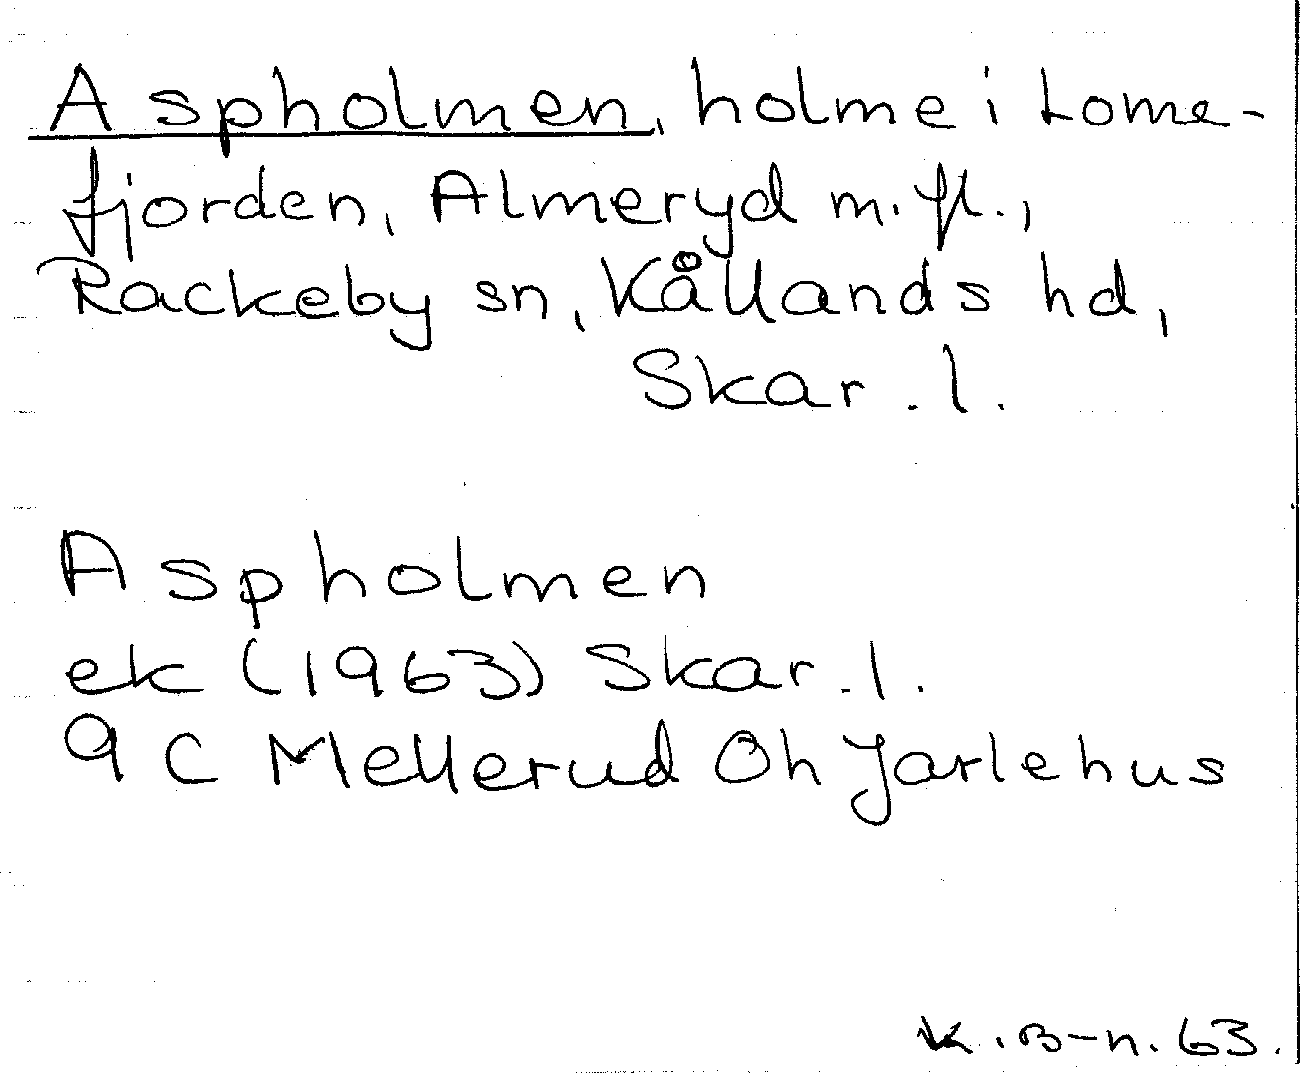 Aspholmen, holme i Lome-
fjorden, Almeryd m. fl.,
Rackeby sn, Kållands hd,
Skar. l.
Aspholmen
ek (1963) Skar. l.
9 C Mellerud Öh Jarlehus
K. B-n. 63.